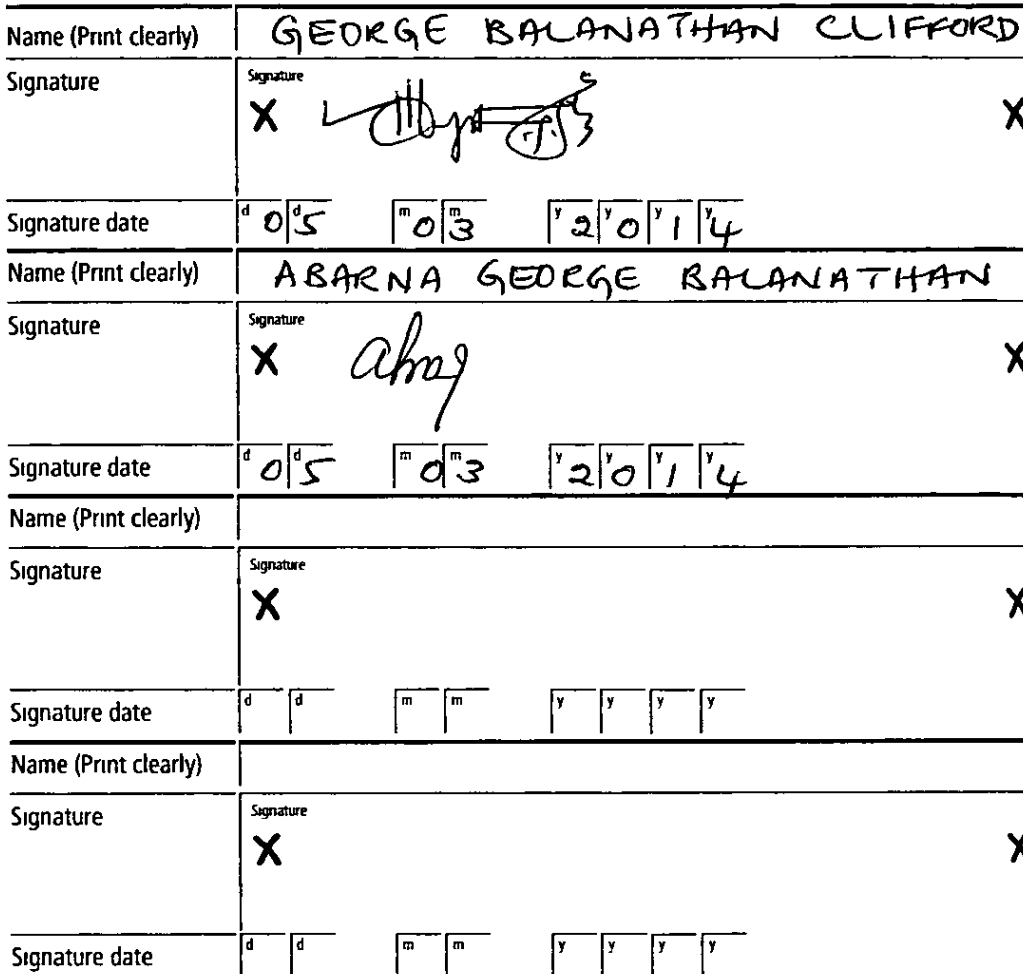 Name (Print clearly) GEORGE BALANATHAN CLIFFORD
Signature Signature
X X
Signature date d 0 d 5 m 0 m 3 y 2 y 0 y 1 y 4
Name (Print clearly) ABARNA GEORGE BALANATHAN
Signature Signature
X X
Signature date d 0 d 5 m 0 m 3 y 2 y 0 y 1 y 4
Name (Print clearly)
Signature Signature
X X
Signature date d d m m y y y y
Name (Print clearly)
Signature Signature
X X
Signature date d d m m y y y y